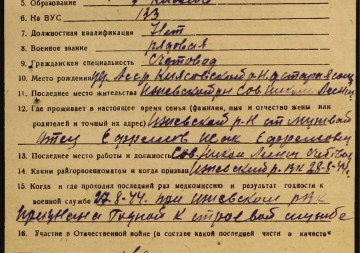 5. Образование
6. На ВУС 133
7. Должностная квалификация Нет
8. Военное звание рядовая
9. Гражданская специальность Счетовод
10. Место рождения Уд. Асср Киясовский р-н
11. Последнее место жительства Ижевский р-н Сов.
12. Где проживает в настоящее время семья (фамилия, имя и отчество жены или
родителей и точный их адрес) Ижевский р-н ст.
Отец Ефремов Исак Ефремович
13. Последнее место работы и должность Сов. Счетовод
14. Каким райгорвоенкоматом и когда призван Ижевский р-вк 28-8-44г.
15. Когда и где проходил последний раз медкомиссию и результат годности к
военной службе 27.8-44. при Ижевском рвк
признана годной к строевой службе
16. Участие в Отечественной войне (в составе какой последней части в качестве